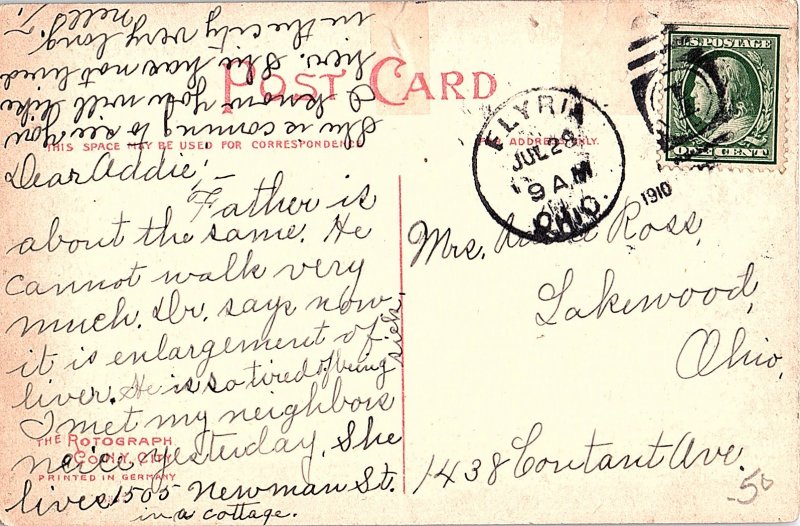 POST CARD
THIS SPACE MAY BE USED FOR CORRESPONDENCE
ADDRESS ONLY.
U.S. POSTAGE
ONE CENT
ELYRIA
JUL 28
9 AM
OHIO.
1910
Dear Addie; –
Father is
about the same. He
cannot walk very
much. Dr. says now
it is enlargement of
liver. He is so tired of being
sick.
I met my neighbors
neice yesterday. She
lives 1505 Newman St.
in a cottage.
She is coming to see you
I know you will like
her. She has not lived
in the city very long.
Nell
Mrs. Ross,
Lakewood,
Ohio,
1438 Coutant Ave.
THE ROTOGRAPH
CO. N.Y. CITY
PRINTED IN GERMANY
50